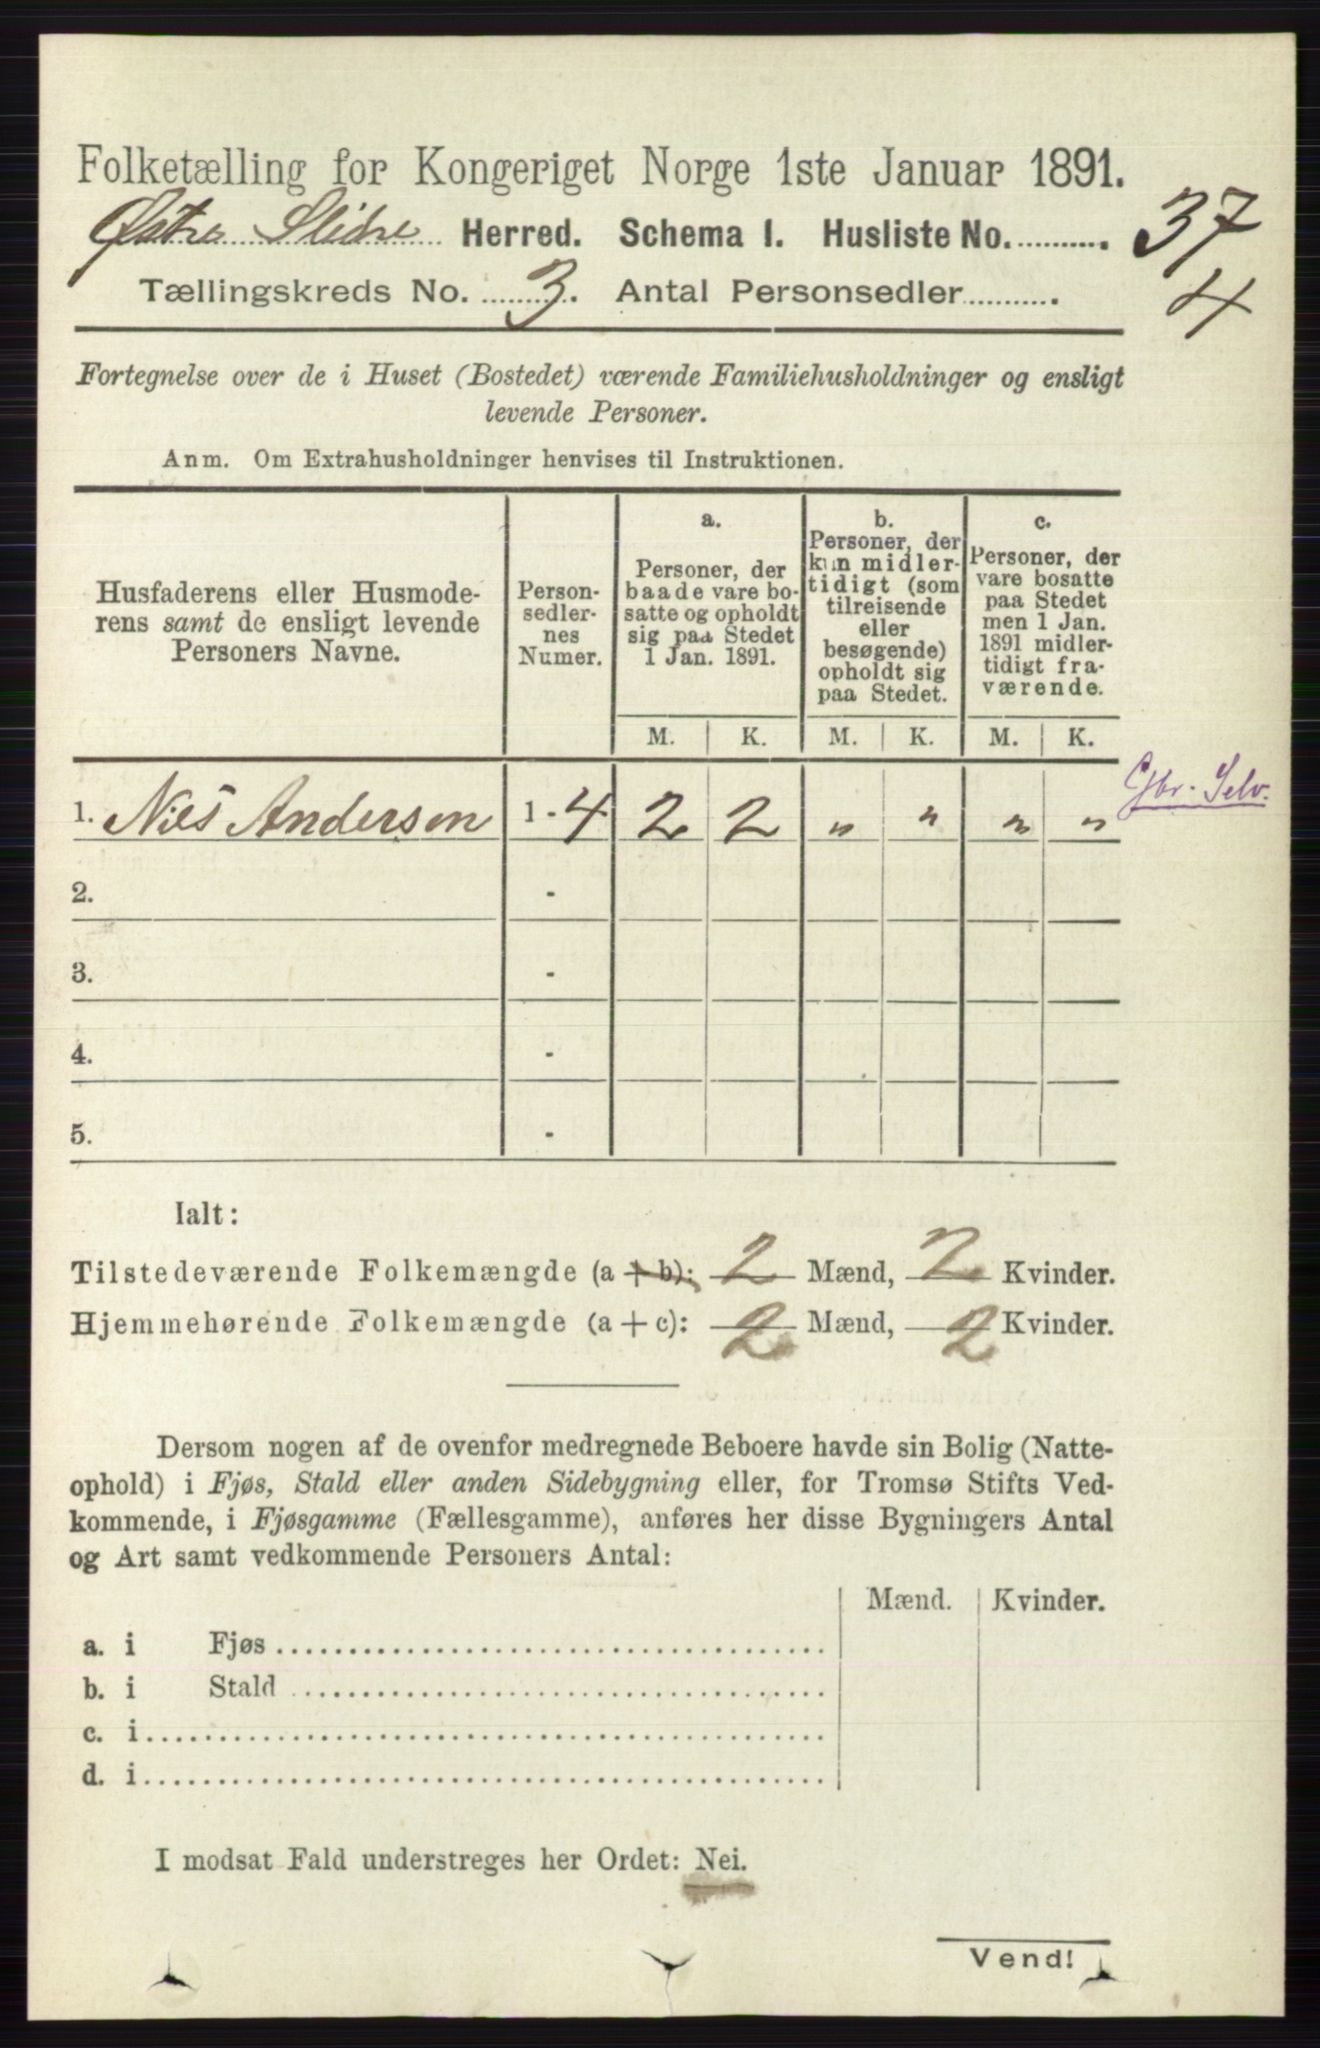 Folketælling for Kongeriget Norge 1ste Januar 1891.
Østre Slidre Herred. Schema I. Husliste No. 37
Tællingskreds No. 3. Antal Personsedler 4
Fortegnelse over de i Huset (Bostedet) værende Familiehusholdninger og ensligt
levende Personer.
Anm. Om Extrahusholdninger henvises til Instruktionen.
Husfaderens eller Husmode-
rens samt de ensligt levende
Personers Navne.
Person-
sedler-
nes
Numer.
a.
Personer, der
baade vare bo-
satte og opholdt
sig paa Stedet
1 Jan. 1891.
b.
Personer, der
kun midler-
tidigt (som
tilreisende
eller
besøgende)
opholdt sig
paa Stedet.
c.
Personer, der
vare bosatte
paa Stedet
men 1 Jan.
1891 midler-
tidigt fra-
værende.
M. K. M. K. M. K.
1. Nils Andersen 1 - 4 2 2 „ „ „ „
Gbr. Selv.
2. -
3. -
4. -
5. -
Ialt:
Tilstedeværende Folkemængde (a + b): 2 Mænd, 2 Kvinder.
Hjemmehørende Folkemængde (a + c): 2 Mænd, 2 Kvinder.
Dersom nogen af de ovenfor medregnede Beboere havde sin Bolig (Natte-
ophold) i Fjøs, Stald eller anden Sidebygning eller, for Tromsø Stifts Ved-
kommende, i Fjøsgamme (Fællesgamme), anføres her disse Bygningers Antal
og Art samt vedkommende Personers Antal:
Mænd. Kvinder.
a. i Fjøs
b. i Stald
c. i
d. i
I modsat Fald understreges her Ordet: Nei.
Vend!